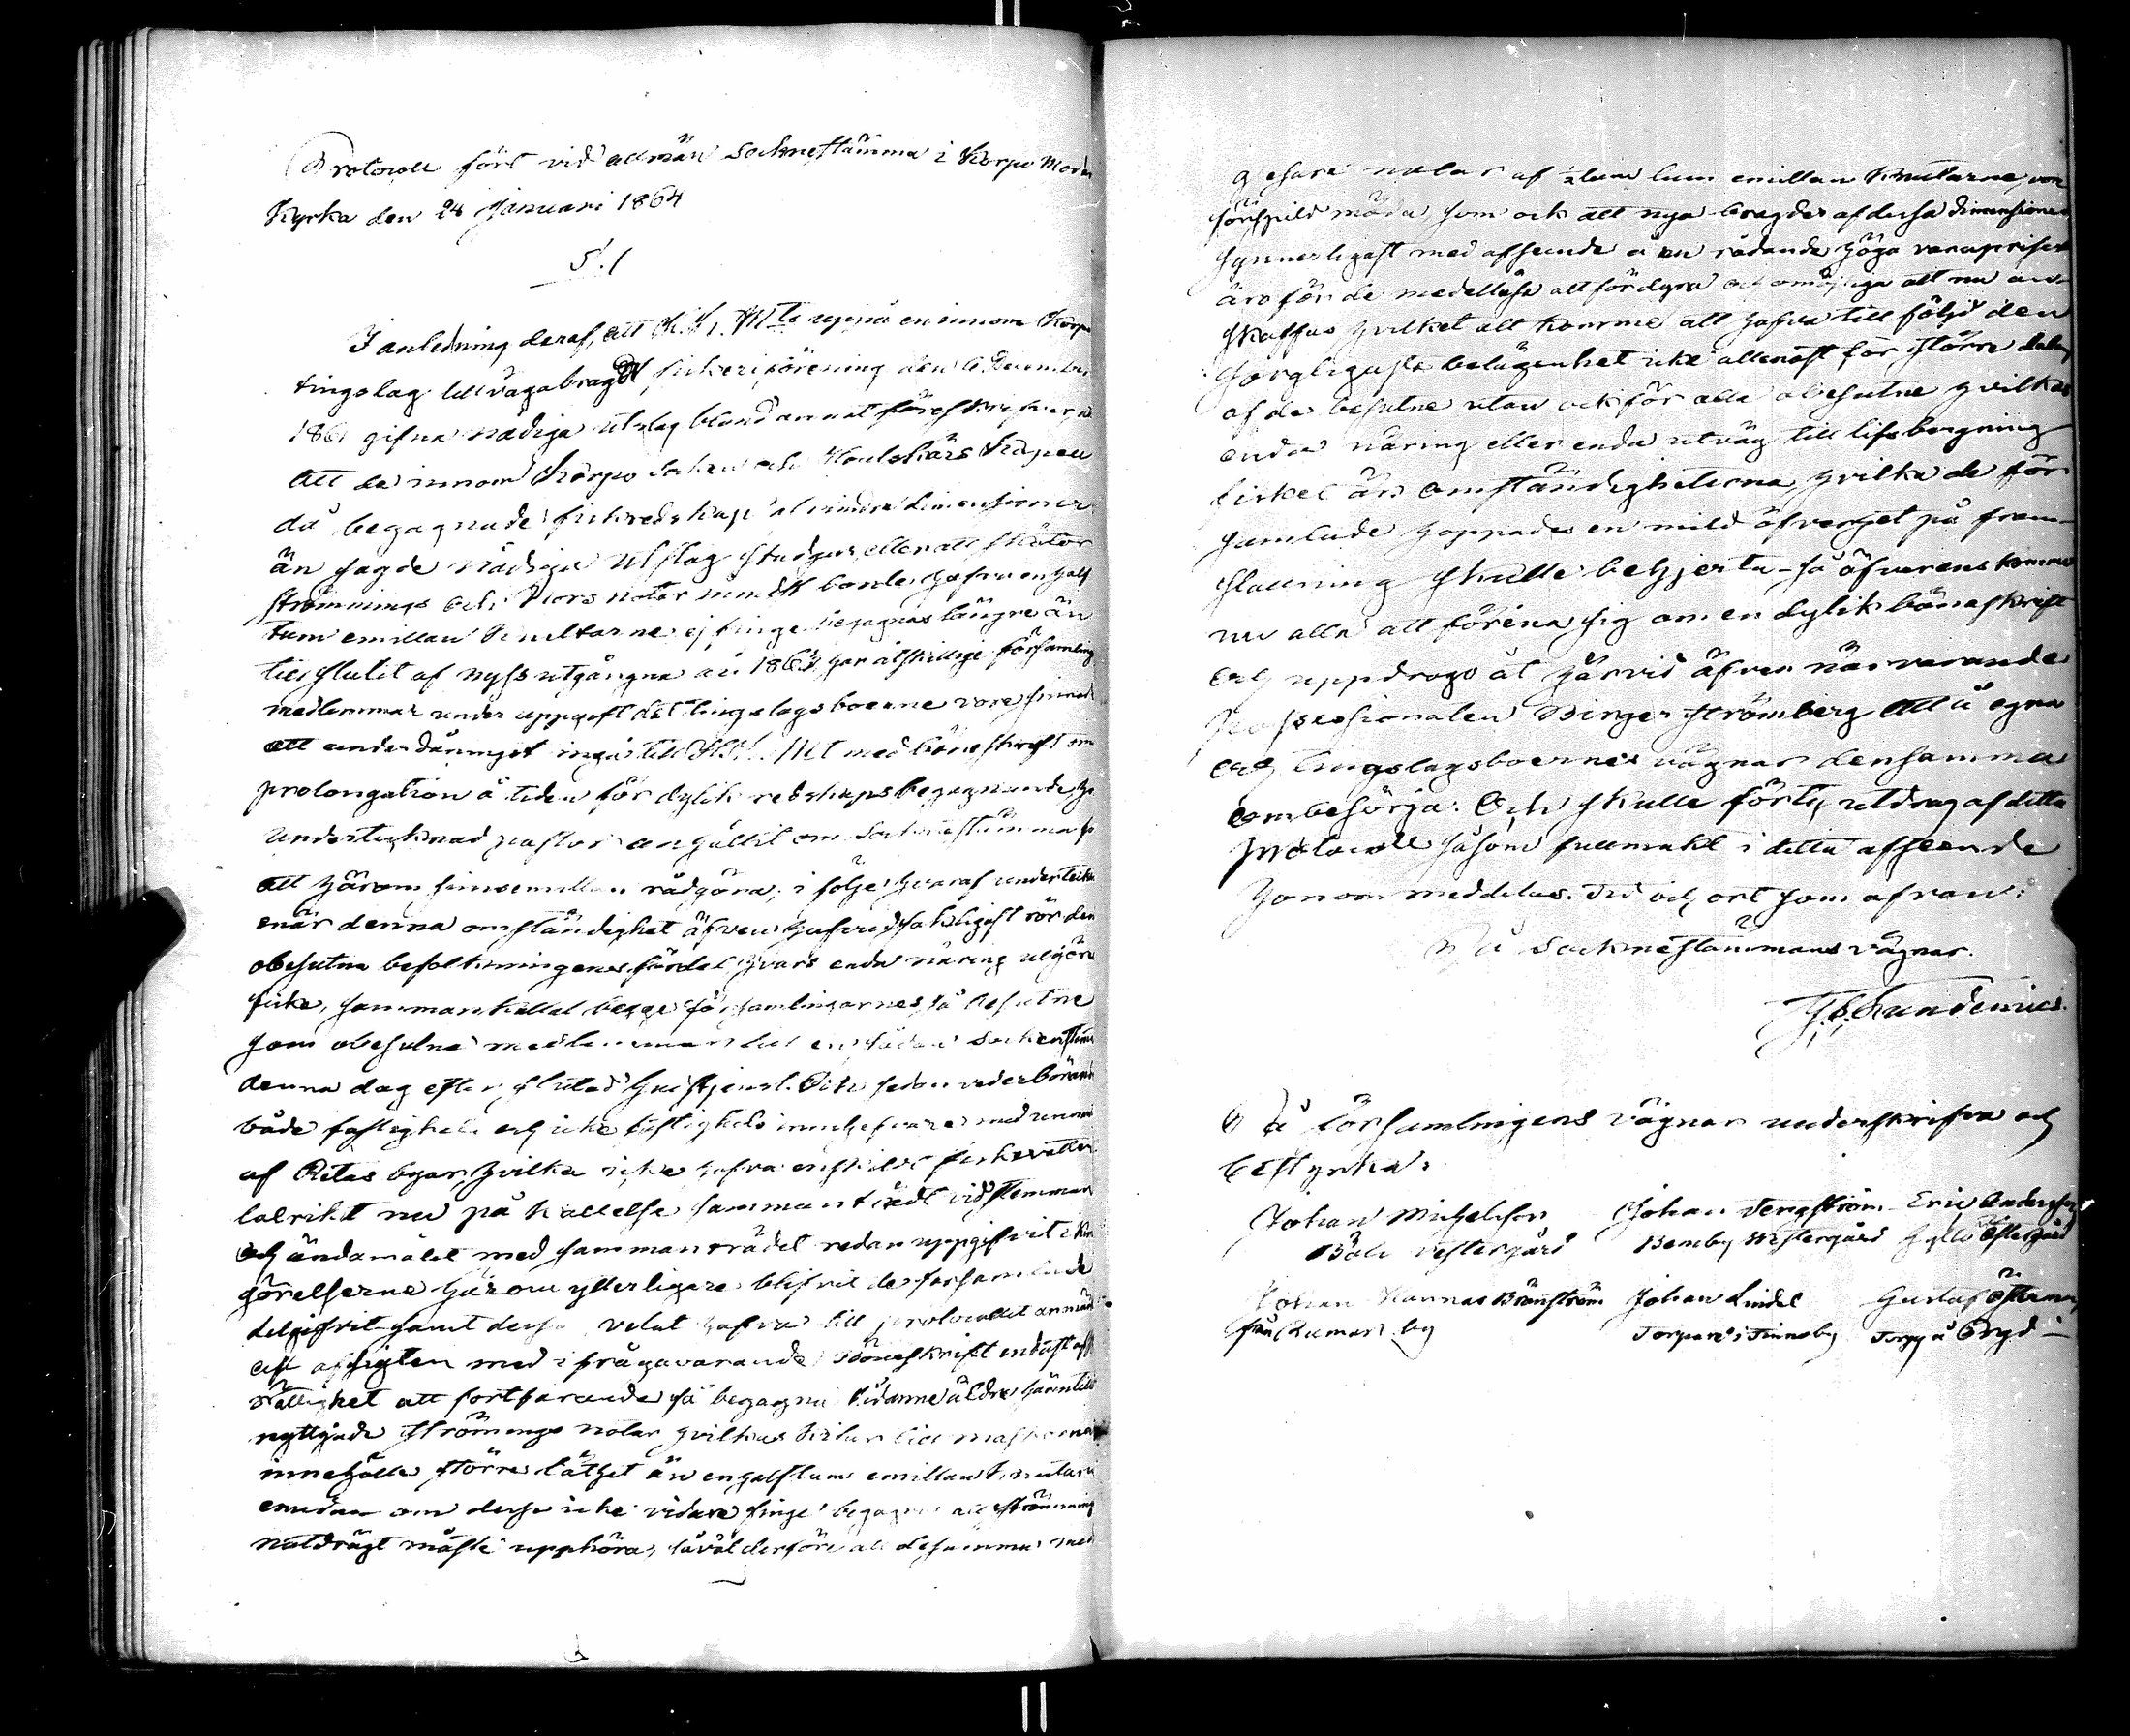 Protocoll fört vid allmän Sockne stämma i Korpo Moder
Kyrka den 24 Januari 1864
§.1
I anledning deraf, att H. K. M:ts uppå en innom Korpo
tingslag till vägabragdt fiskeriförening den 6 December
1861 gifna nådiga utslag bland annat föreskrifver,
att de innom Korpo Socken och Houtskärs Kapell
då begagnade fiskredskap af mindre dimensioner
än sagde nådiga utslag stadgar, eller att skötar
strömmings och Nors notar minst borde hafva en half
tum emillan Knutarne ej finge begagnas längre än
till slutet af nyss utgångna år 1863 har åtskillige församlings
medlemmar under uppgift det tingslagsboerne vore sinnade
att underdånigst ingå till H.K. Mt med böneskrift om
prolongation å tiden för dylik redskaps begagnande hos
undertecknad pastor anhållit om Sockne stämma för
att härom sinsemellan rådgöra, i följe hvaraf underteckn
enär denna omständighet äfven hufvudsakligast rör den
obesutna befolkningens fördel hvars enda näring utgöres
fiske, sammankallat begge församlingarnes så besutne
som obesutne medlemmar till en sådan Sockenstämma
denna dag efter slutad Gudstjenst. Och sedan vederbörande
både fastighets och icke fastighets innehafvare med undan
af Retais byar, hvilka icke hafva enskildt fiskevatten
talrikt nu på kallelse sammanträdt vid stemman
och ändamålet med sammanträdet redan uppgifvit i kun
görelserne härom ytterligare blifvit de församlade
delgifvit samt dessa velat hafva till protocollet anmärkt
att afsigten med ifrågavarande Böneskrift endast afser
rättighet att fortfarande få begagna sådanne äldre härintill
nyttjade strömings notar hvilkas kilar till maskorna
innehålla större täthet än en half tum emillan knutarne
emedan om dessa icke vidare finge begagnas all strömming
notdrägt måste upphöra, såväl derföre att desamma med
glesare notar af ½ tum tum emillan Knutarne, vore
förspild möda, som ock att nya bragder af dessa dimensioner
synnerligast med afseende å nu rådande höga varupriser
äro för de medellöse allt för dyra och omöjliga att nu an-
skaffas hvilket allt komme att hafva till följd den
sorgligaste belägenhet icke allenast för större delen
af de besutne utan ock för alla obesutne hvilkas
enda näring eller enda utväg till lifsbergning
fisket är. Omständigheterna, hvilka de för
samlade hoppades en mild öfverhet på fram-
ställning skulle behjerta - så öfverens komme
nu alla att förena sig om en dylik böneskrift
och uppdrogo åt härvid äfven närvarande
Possessionaten Birger Strömberg att å egna
och tingslagsboernes vägnar densamma
ombesörja. Och skulle förty utdrag af detta
protocoll såsom fullmakt i detta afseende
honom meddelas. Tid och ort som ofvan:
På Socknestämmans vägnar.
På Församlingens vägnar underskrifva och
bestyrka:
Johan Michelsson Johan Vengström Eric Andersson
Vestergård Bemby Westergård Gyttö Östergård
Johan Hannas Brönström Johan Lindel Gustaf Österman
från Rumar by Torpare i Finnoby Torp å Bryd